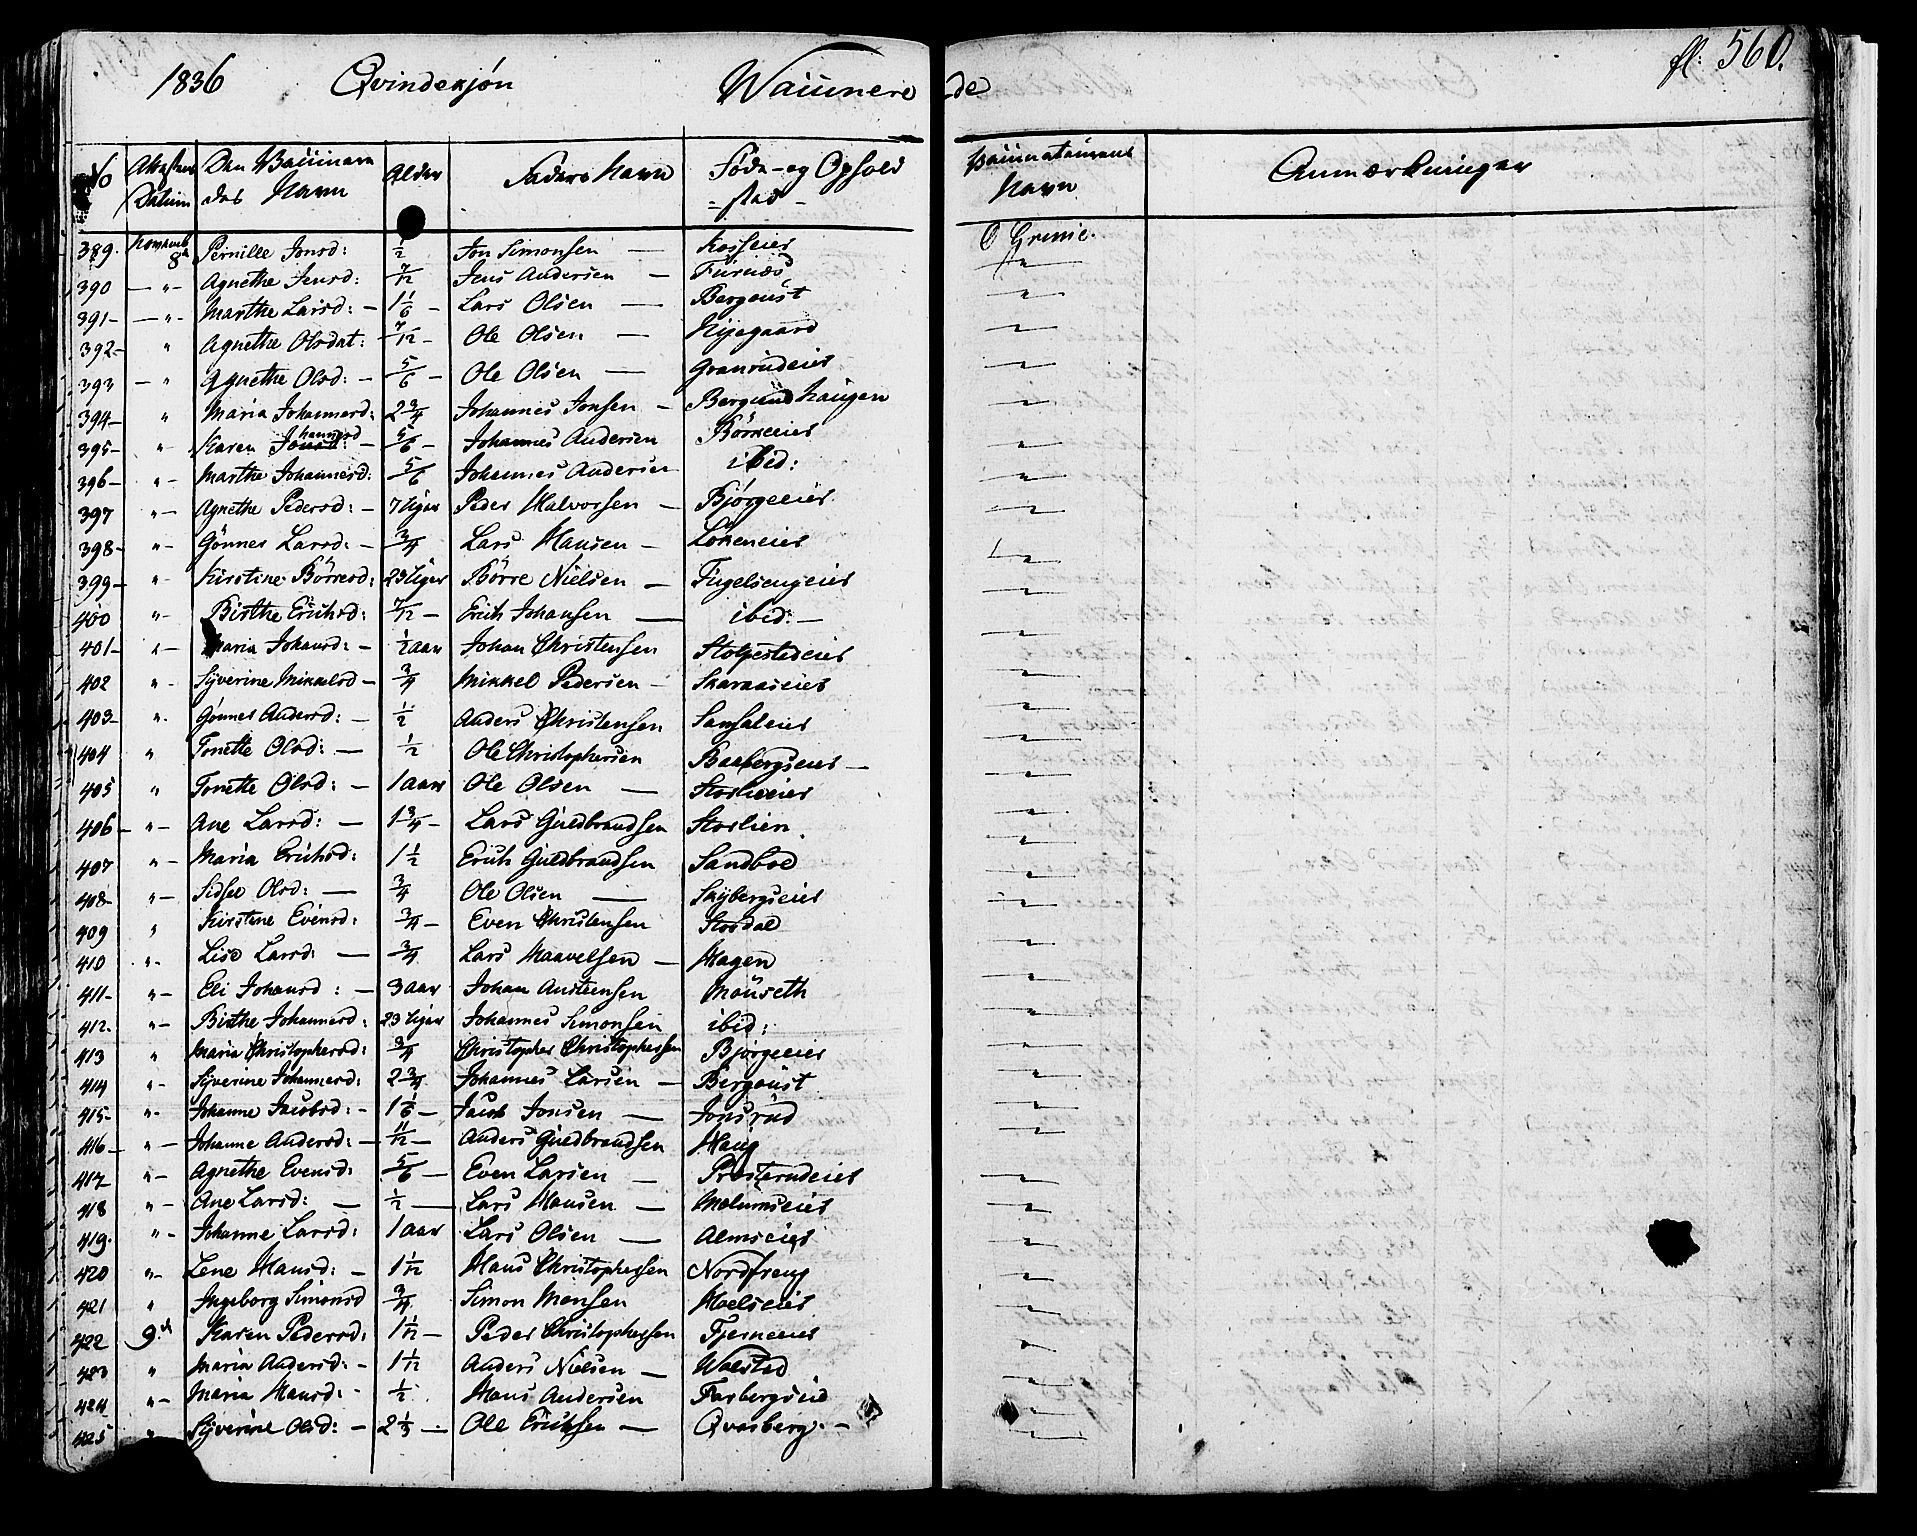 1836 Qvindekjøn Vaccinerede fl: 560.
No Attestens Datum Den Vaccinerendes Navn Alder Faders Navn Føde- og Ophold-sted Vaccinateurens Navn Anmærkninger
389. Novemb 8de Pernille Jonsd: 1/2 Jon Simonsen — Kosseier O Grenie.
390 — " — Agnethe Jensd: 7/12 Jens Andersen — Furnæs "
391 — — " - Marthe Larsd: — 1 1/6 - Lars Olsen — Bergeust "
392 — " Agnethe Olsdat: — 7/12 - Ole Olsen — Kjøgaard "
393 — " Agnethe Olsd: — 5/6 - Ole Olsen — Granrudeier "
394 — " Maria Johannesd: 2 3/4 Johannes Jonsen — Berglund haugen "
395 - " - Karen Johannesd — 5/6 - Johannes Andersen Børkeeier "
396 — " - Marthe Johannesd: 5/6 Johannes Andersen ibid: "
397 " - Agnethe Pedersd: — 7 Uger Peder Halvorsen — Bjørgeeier "
398 - " - Gønner Larsd: — 3/4 Lars Hansen — Løkeneier "
399 — " - Kirstine Børresd: 23 Uger Børre Nielsen — Fugelsengeier "
400 " - Birthe Erichsd: 7/12 — Erich Johansen — ibid: — "
401 - " — Maria Johansd: — 1/2 aar Johan Christensen Stolpestedeier "
402 " - Syverine Mikkelsd — 3/4 Mikkel Pedersen — Skaraaseier "
403 - " - Gønner Andersd: — 1/2 Anders Christensen "
404 " Tonette Olsd: — 1/2 Ole Christophersen Baabergseier — "
405 " Tonette Olsd: — 1 aar Ole Olsen — Storlieeier "
406 - " — Ane Larsd: — 1 3/4 - Lars Guldbrandsen Storlien. "
407 " — Maria Erichsd: 1 1/2 Erich Guldbrandsen Sandboe "
408 - " — Sidsee Olsd: — 3/4 Ole Olsen — Skybergseier "
409 " Kirstene Evensd: 3/4 - Even Christensen Stordal "
410 " - Lise Larsd: — 3/4 Lars Haavelsen — Hagen "
411 - " — Eli Johansd: — 3 aar Johan Austensen Mouseth "
412. " — Birthe Johannesd: 23 Uger Johannes Simonsen ibid: "
413 " Maria Christophersd: 3/4 Christopher Christophersen Bjørgeeier "
414 " - Syverine Johannesd: 2 3/4 Johannes Larsen — Bergeust "
415 - " - Johanne Jacobsd: - 1 1/6 — Jacob Jonsen — Jonsrud "
416 - " — Johanne Andersd: — 11/12 — Anders Guldbrandsen Haug "
417 " — Agnethe Evensd: 5/6 — Even Larsen — Prosterudeier "
418 " — Ane Larsd: — 1/2 — Lars Hansen — Melumseier "
419. " - Johanne Larsd: 1 aar Lars Olsen — Almseier "
420 " - Lene Hansd: — 1 1/12 Hans Christophersen Nordfreng "
421 " Ingeborg Simonsd 3/4 Simon Monsen Hoelseier "
422 9d Karen Pedersd: 1 1/12 — Peder Christophersen Fjerneeier "
423 " Maria Andersd: — 1 1/12 Anders Nielsen — Wolstad "
424 " - Maria Hansd: - 1/2 Hans Andersen Farbergseie "
425 " Syverine Olsd: — 2 1/3 — Ole Erichsen — Qvarberg. — "